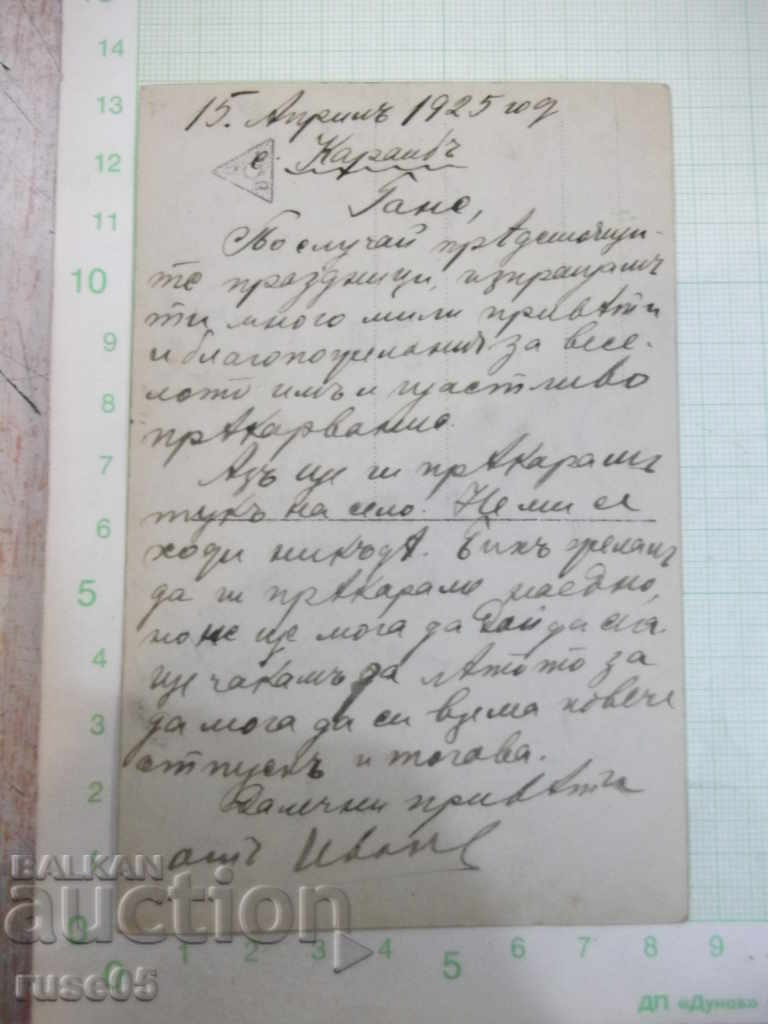 15. Априлъ 1925 год
с. Караибъ
Гане,
По случай прѣдстоящи-
те празници, изпращамъ
ти много мили привѣти
и благопожелания за весе-
лото имъ и щастливо
прѣкарвание.
Азъ ще ги прѣкарамъ
тукъ на село. Не ми се
ходи никъдѣ. Бихъ желалъ
да ги прѣкараме наедно,
но не ще мога да дойда сега.
ще чакамъ да лѣтото за
да мога да си взема повече
отпускъ и тогава.
Далечни привѣти
отъ Иванъ
BALKAN
auction
ruse05
ДП «Дунав»
15
14
13
12
11
10
9
8
7
6
5
4
3
2
1
0
0 1 2 3 4 5 6 7 8 9